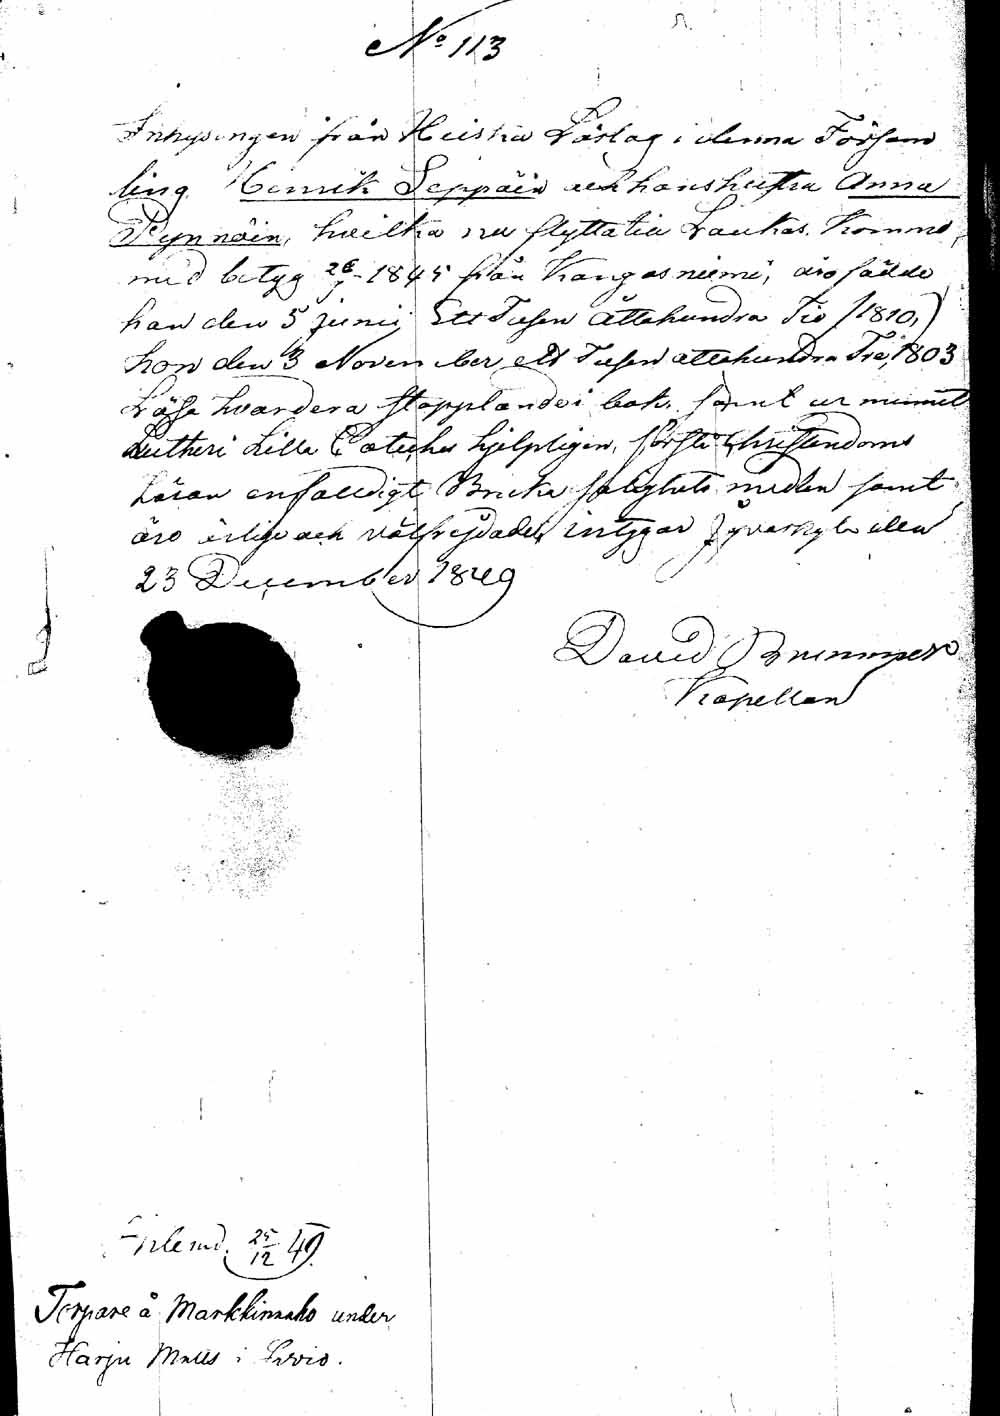 No 113
Inhysingen från Heiska Lörlag i denna Försam
ling Henrik Seppäin och hans hustru Anna
Pynnöin, hvilka nu flytta till Laukas. Komna,
med betyg 26/7 1845 från Kangasniemi, äro födde
han den 5 Junij Ett Tusen Åttahundra Tio (1810,)
hon den 3 November ett Tusen åttahundra Tre, 1803
Läsa hvardera stapplande i bok samt ur minnet
Lutheri Lilla Cateches hjelpligen, förstå Christendoms
Läran enfaldigt Bruka salighets medlen samt
äro ärlige och välfrejdade, intygar Jyväskylä den
23 December 1849
David Brummer
Kapellan
Inlemd. 25/12 49.
Torpare å Markkinaho under
Harju Matts i